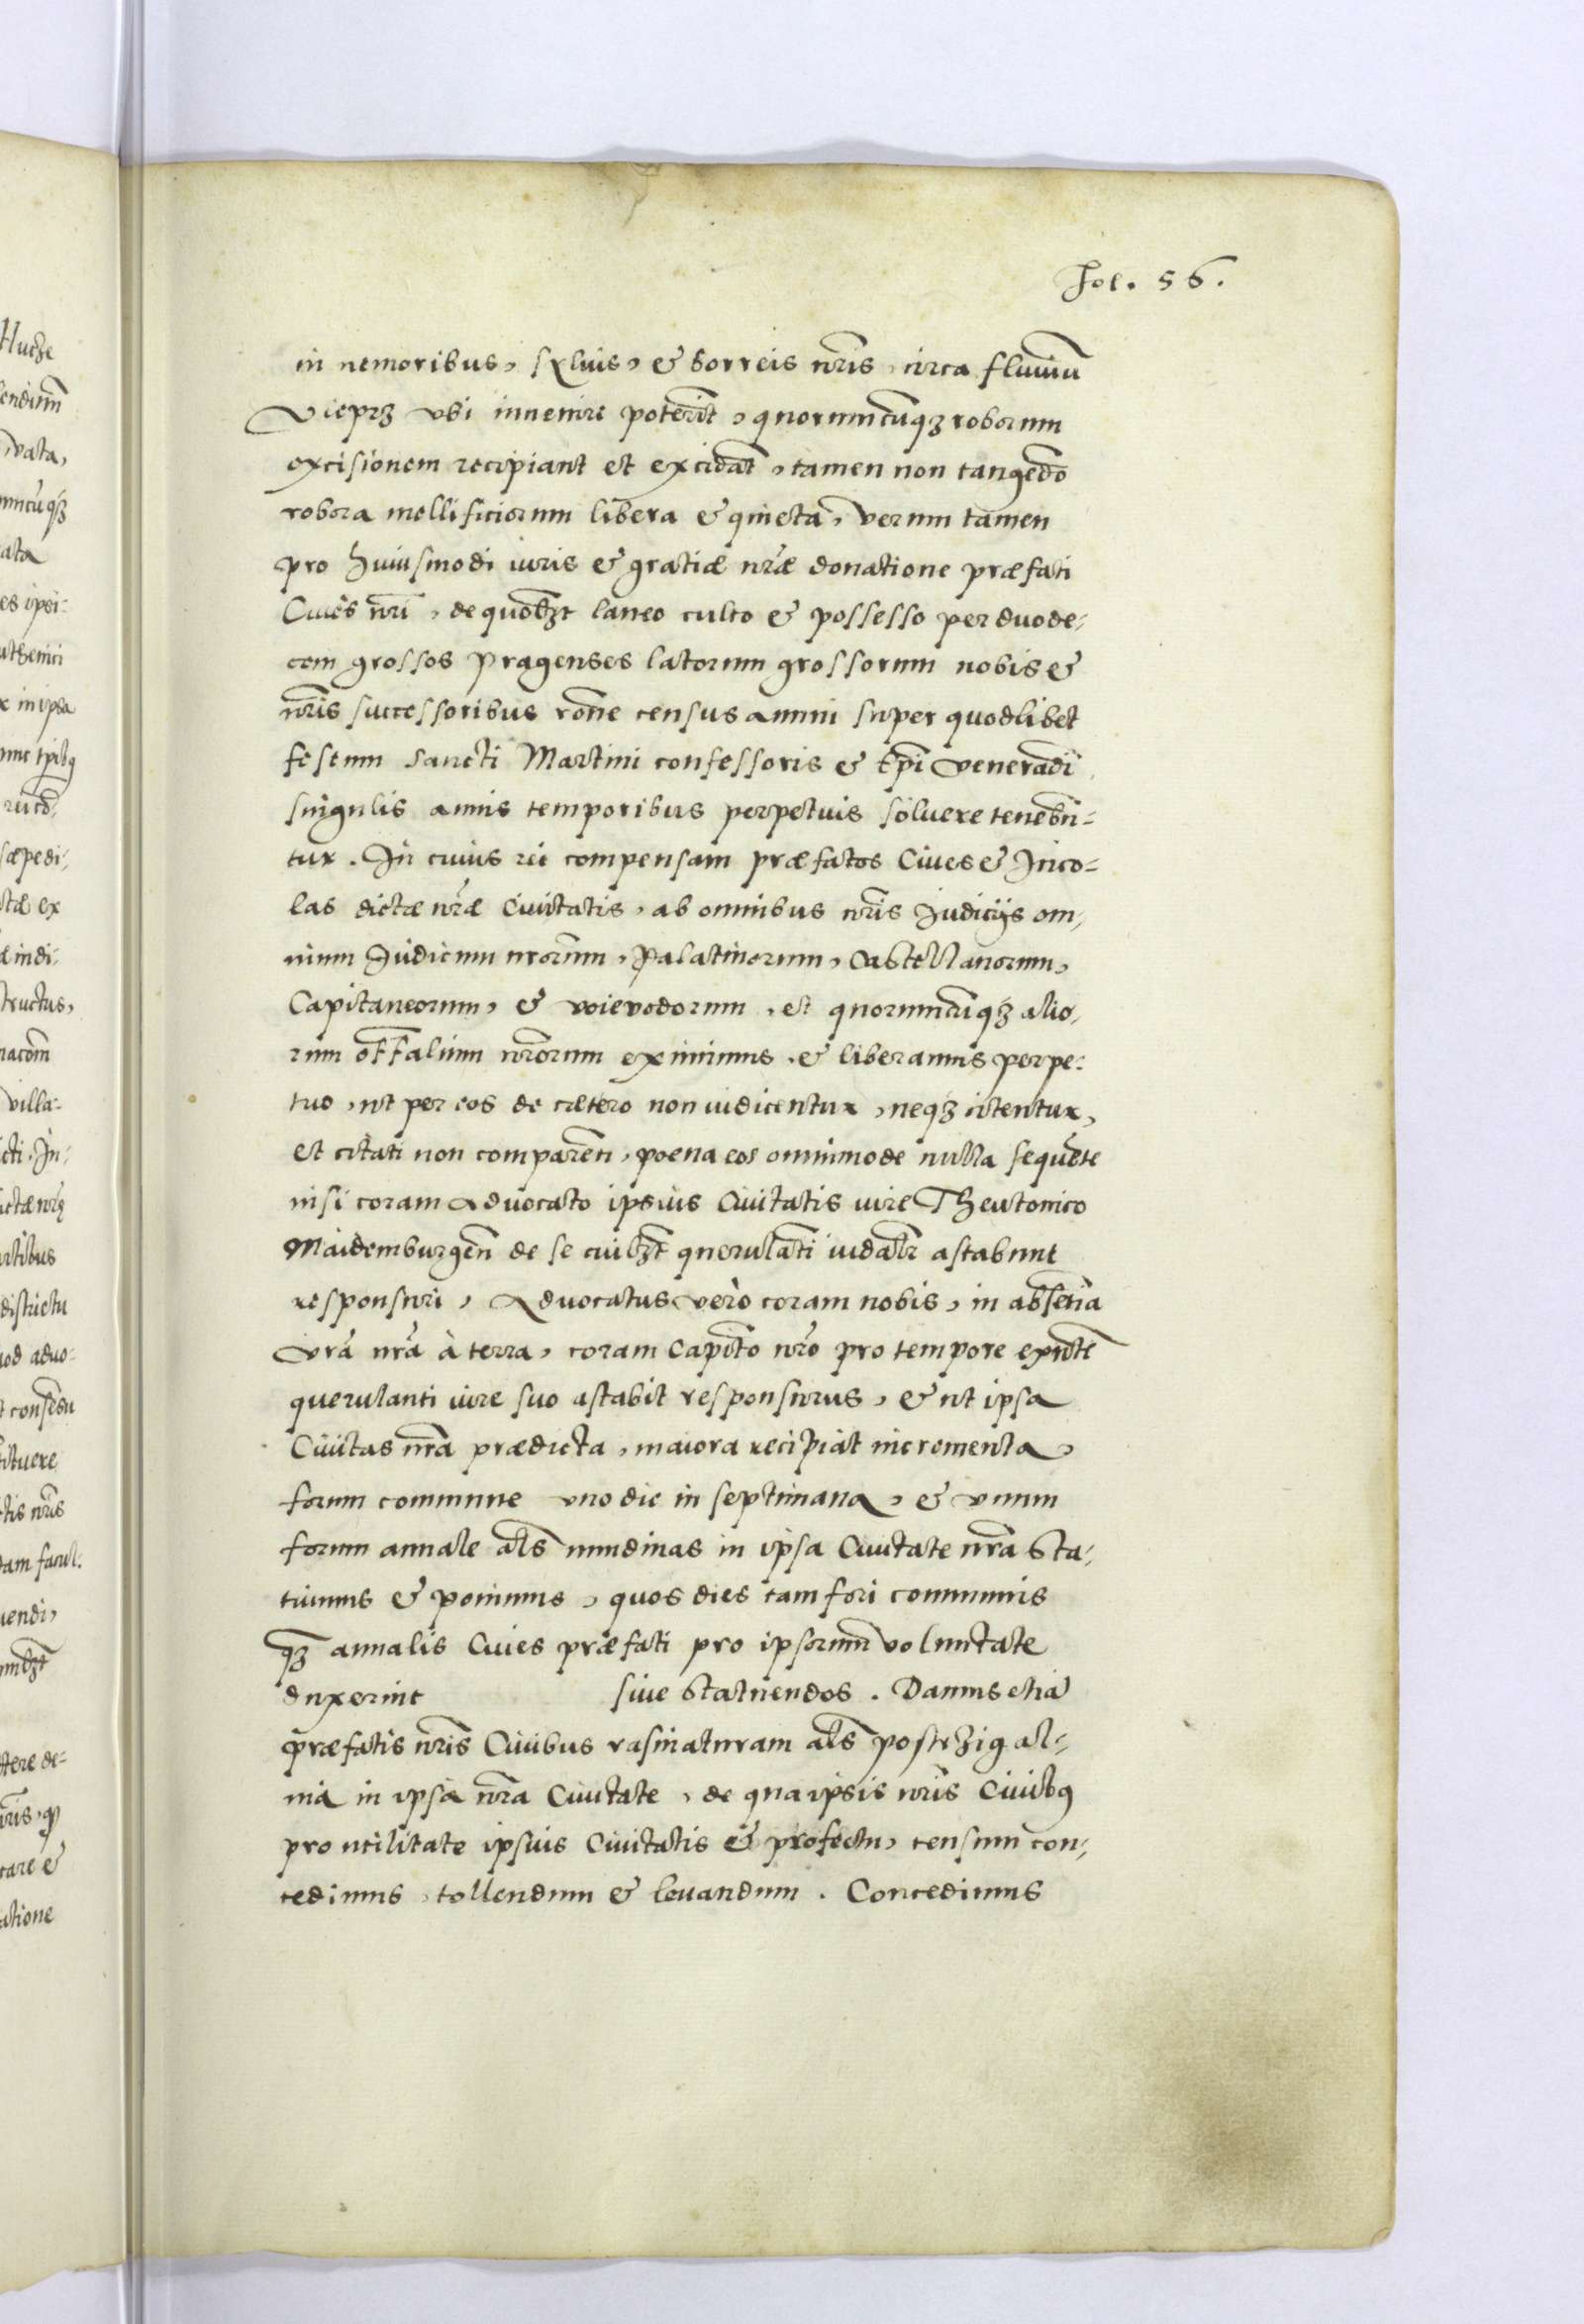 Fol. 56.
in nemoribus, syluis, & borreis nr̃is, circa fluuiũ
Vieprz vbi inuenire poterĩt, quorumcũq3 roborum
excisionem recipiant et excidãt, tamen non tangẽdo
robora mellificiorum libera & quieta, verum tamen
pro huiusmodi iuris & gratiæ nr̃æ donatione præfati
Ciues nr̃i, de quolib3t laneo culto & possesso per duode-
cem grossos pragenses latorum grossorum nobis &
nr̃is successoribus rõne census annui super quodlibet
festum sancti Martini confessoris & Ep̃i venerãdi
singulis annis temporibus perpetuis soluere tenebũ-
tur. In cuius rei compensam præfatos Ciues & Inco-
las dictæ nr̃æ Ciuitatis, ab omnibus nr̃is Iudicijs om-
nium Iudicum nrorũm, Palatinorum, Castellanorum,
Capitaneorum, & voievodorum, et quorumcũq3 alio-
rum off̃alium nr̃orum eximimus, & liberamus perpe-
tuo, ut per eos de cætero non iudicentur, neq3 citentur,
et citati non comparẽn, poena eos omnimode nulla sequẽte
nisi coram Aduocato ipsius Ciuitatis iure Theutonico
Maidemburgẽn de se cuilib3t querulãti iudalr̃ astabunt
responsuri, Aduocatus vero coram nobis, in absẽtia
vrã nrã à terra, coram Capitõ nr̃o pro tempore exñte
querulanti iure suo astabit responsurus, & ut ipsa
Ciuitas nr̃a prædicta, maiora recipiãt incrementa,
forum commune vno die in septimana, & vnum
forum annale al̃s nundinas in ipsa Ciuitate nr̃a sta-
tuimus & ponimus, quos dies tam fori communis
q3 annalis Ciues præfati pro ipsorum voluntate
duxerint siue statuendos. Damus etiã
præfatis nr̃is Ciuibus rasinaturam al̃s postrzigal-
nia in ipsa nr̃a Ciuitate, de qua ipsis nr̃is Ciuibq
pro utilitate ipsius Ciuitatis & profectu, censum con-
cedimus, tollendum & leuandum. Concedimus